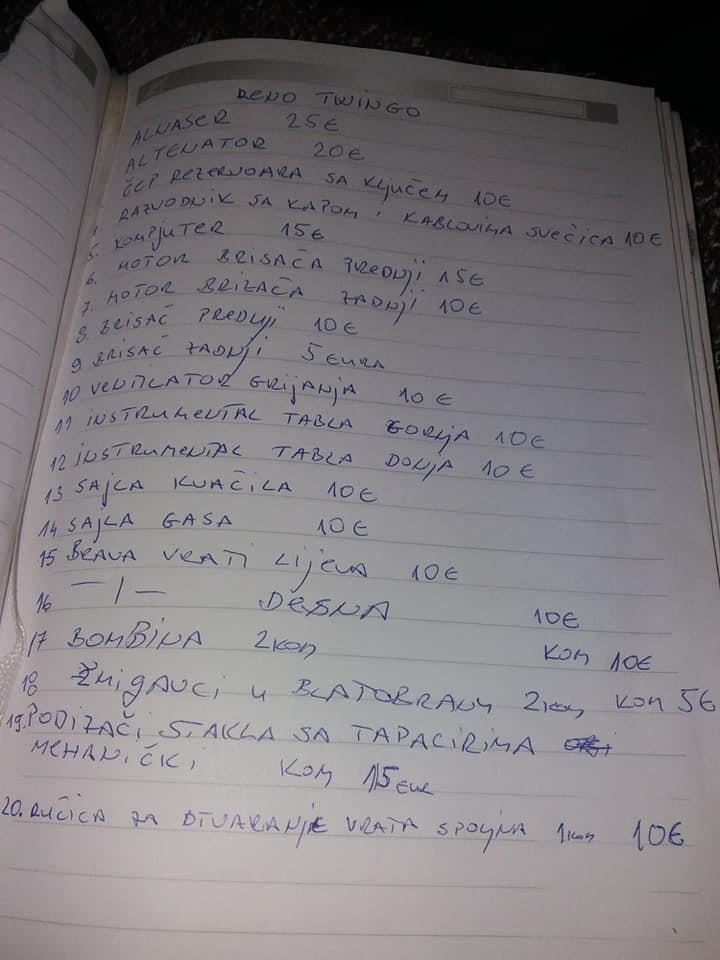 RENO TWINGO
ALNASER 25€
ALTENATOR 20€
ČEP REZERVOARA SA KLJUČEM 10€
RAZVODNIK SA KAPOM I KABLOVIMA SVEĆICA 10€
5. KOMPJUTER 15€
6. MOTOR BRISAČA PREDNJI 15€
7. MOTOR BRIZAČA ZADNJI 10€
8. BRISAČ PREDNJI 10€
9 BRISAČ ZADNJI 5 EURA
10 VENTILATOR GRIJANJA 10€
11 INSTRUMENTAL TABLA GORNJA 10€
12 INSTRUMENTAL TABLA DONJA 10€
13 SAJLA KVAČILA 10€
14 SAJLA GASA 10€
15 BRAVA VRATI LIJEVA 10€
16 —/— DESNA 10€
17 BOMBINA 2 KOM KOM 10€
18 ŽMIGAVCI U BLATOBRANU 2 KOM KOM 5€
19. PODIZAČI STAKLA SA TAPACIRIMA
MEHANIČKI KOM 15 EUR
20. RUČICA ZA OTVARANJE VRATA SPOLJNA 1 KOM 10€